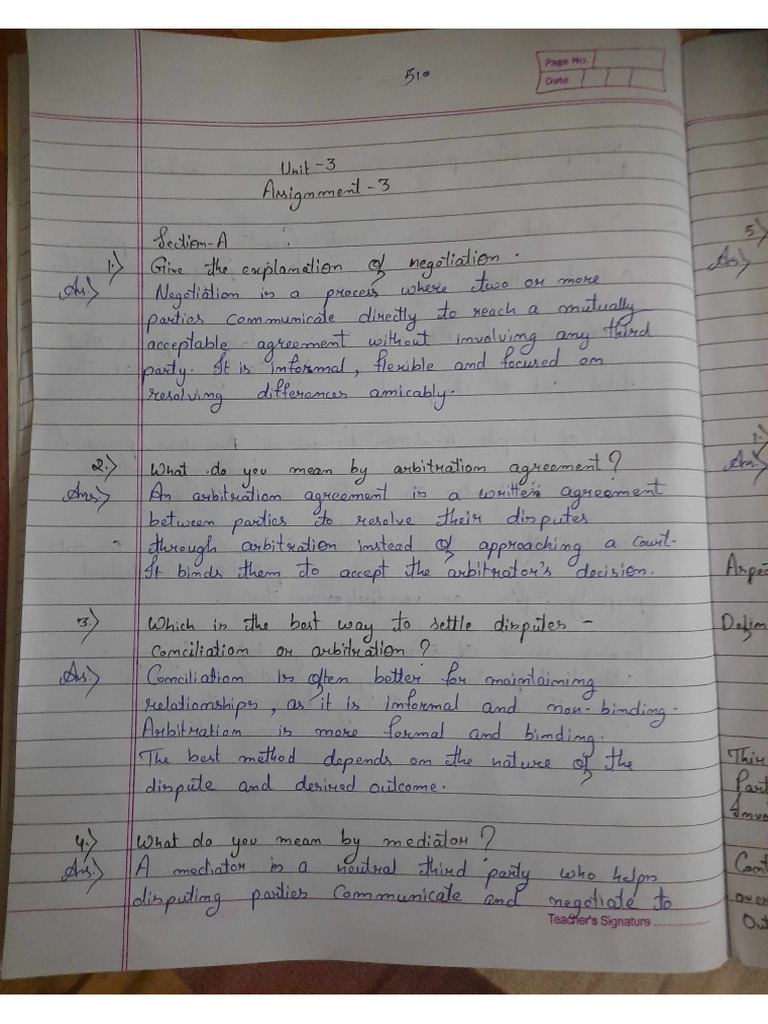 510
Page No.
Date
Unit - 3
Assignment - 3
Section-A
1.) Give the explanation of negotiation.
Ans) Negotiation is a process where two or more
parties communicate directly to reach a mutually
acceptable agreement without involving any third
party. It is informal, flexible and focused on
resolving differences amicably.
2.) What do you mean by arbitration agreement?
Ans:) An arbitration agreement is a written agreement
between parties to resolve their disputes
through arbitration instead of approaching a court.
It binds them to accept the arbitrator's decision.
3.) Which is the best way to settle disputes -
conciliation or arbitration?
Ans:) Conciliation is often better for maintaining
relationships, as it is informal and non-binding.
Arbitration is more formal and binding.
The best method depends on the nature of the
dispute and desired outcome.
4.) What do you mean by mediator?
Ans.) A mediator is a neutral third party who helps
disputing parties communicate and negotiate to
Teacher's Signature
5)
Ans)
1.
Ans)
Aspe
Defin
Thir
Part
Invo
Cont
over
Out